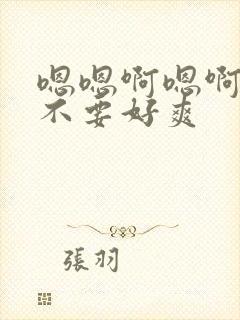 嗯嗯啊嗯啊
不要好爽
張羽